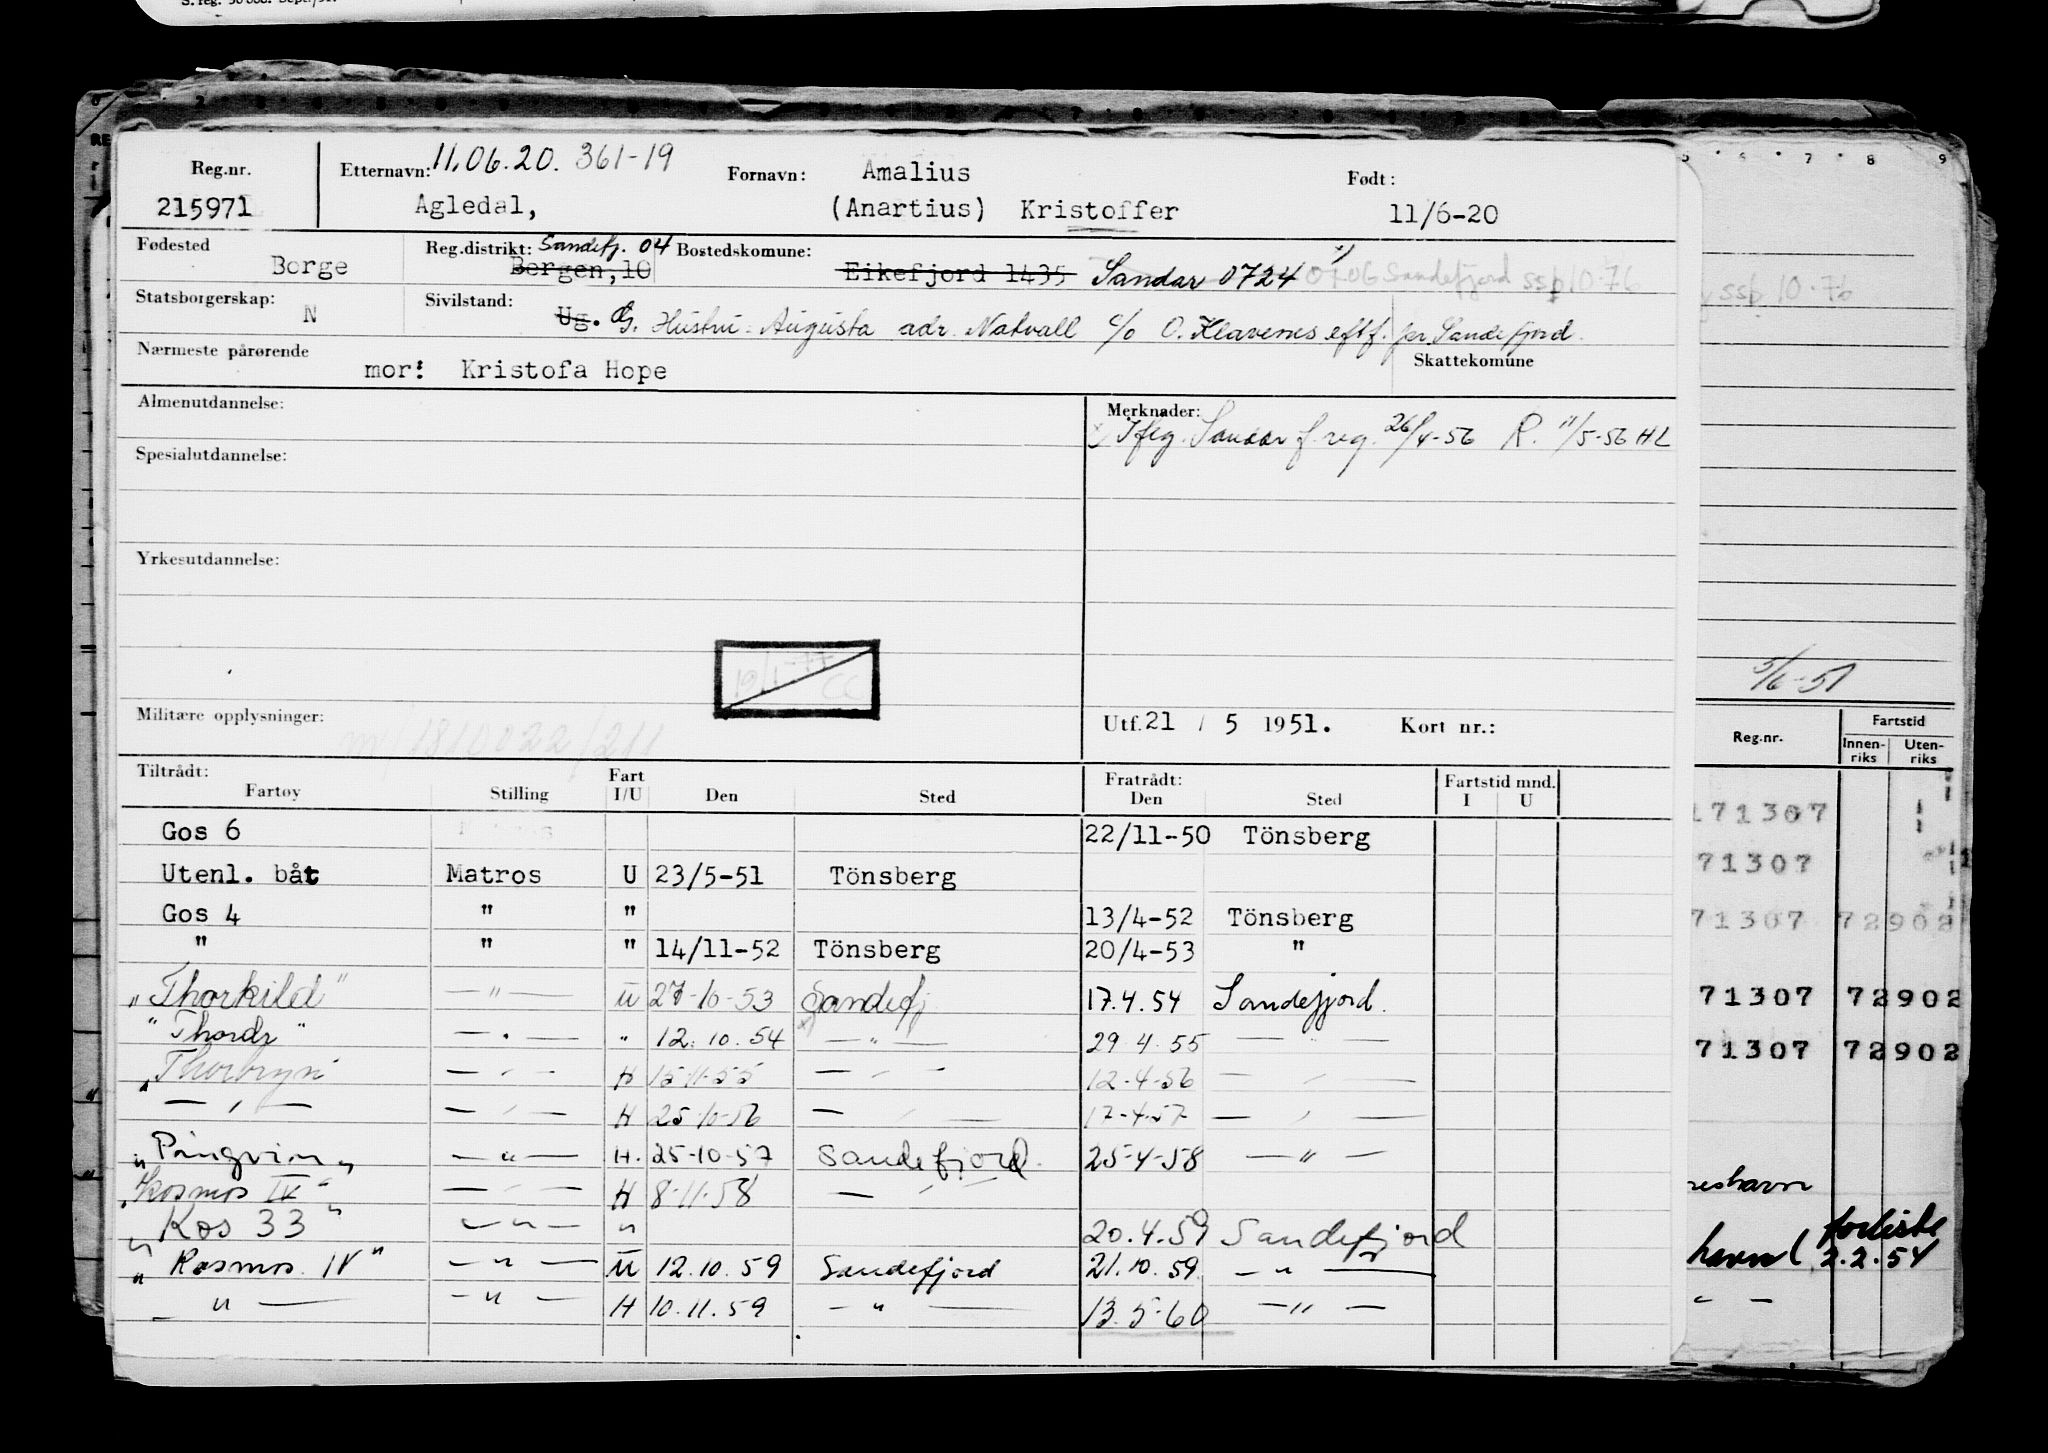 S. reg. 50 000. Sept./51.
Reg.nr. Etternavn: 11.06.20. 361-19 Fornavn: Amalius Født:
215971 Agledal, (Anartius) Kristoffer 11/6-20
Fødested Reg.distrikt: Sandefj. 04 Bostedskomune: x)
Borge Bergen, 10 Eikefjord 1435 Sandar 0724 0706 Sandefjord ssp 10.76
Statsborgerskap: Sivilstand:
N Ug. G. Hustru: Augusta adr. Natvall c/o O. Klavenes eftf. pr. Sandefjord.
Nærmeste pårørende Skattekomune
mor: Kristofa Hope
Almenutdannelse: Merknader:
x) Iflg. Sandar f.reg. 26/4-56 R. 11/5-56 HL
Spesialutdannelse:
Yrkesutdannelse:
19/1-77 CC
Militære opplysninger: Utf. 21 / 5 1951. Kort nr.:
m/1810022/211
Tiltrådt: Fart Fratrådt: Fartstid mnd.
Fartøy Stilling I/U Den Sted Den Sted I U
Gos 6 22/11-50 Tönsberg
Utenl. båt Matros U 23/5-51 Tönsberg
Gos 4 " " 13/4-52 Tönsberg
" " " 14/11-52 Tönsberg 20/4-53 "
"Thorkild" — " — U 27-10-53 Sandefj 17.4.54 Sandefjord.
"Thordr" — " — " 12.10.54 — " — 29.4.55 — " —
"Thorbryn — " — H 15.11.55 — " — 12-4-56 — " —
— " — — " — H 25.10.56 — " — 17-4-57 — " —
"Pingvin" — " — H. 25-10-57 Sandefjord. 25-4-58 — " —
"Kosmos IV" — " — H 8.11.58 — " —
"Kos 33" — " — " 20.4.59 Sandefjord
"Kosmos IV" — " — U 12.10.59 Sandefjord 21.10.59. — " —
— " — — " — H 10.11.59 — " — 13.5-60 — " —
6 7 8 9
ssp 10.76
5/6-51
Reg.nr. Fartstid
Innen-riks Uten-riks
171307
71307
71307 72902
71307 72902
71307 72902
havn
havn ( forliste
2.2.54